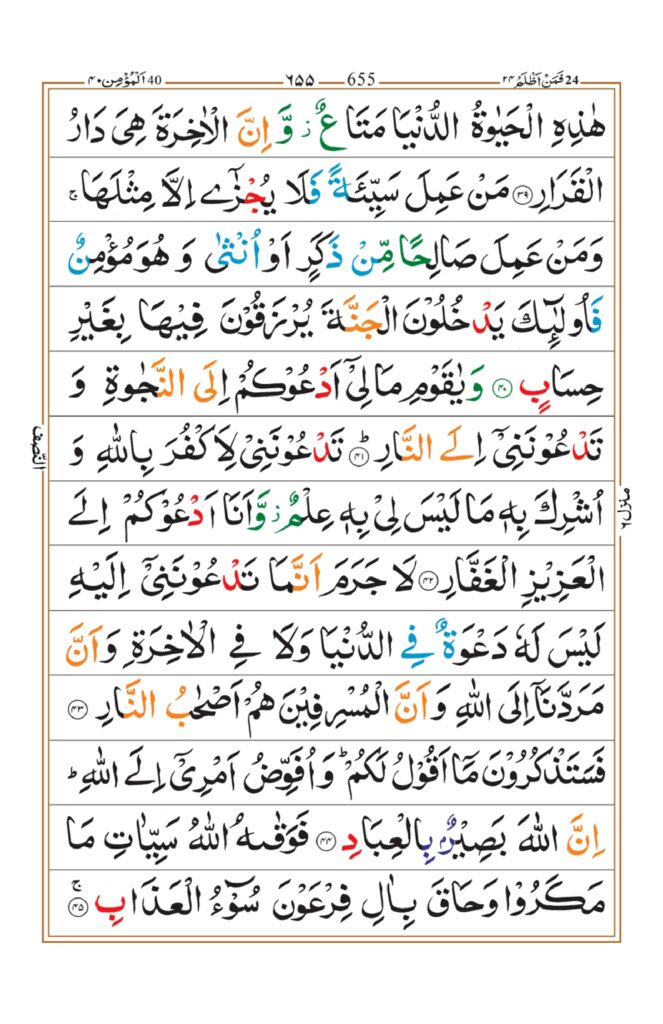 فَمَنْ اَظْلَمُ ٢٤ 24 655 ٦٥٥ اَلْمُؤْمِن ٤٠ 40
هٰذِهِ الْحَيٰوةُ الدُّنْيَا مَتَاعٌ ز وَّ اِنَّ الْاٰخِرَةَ هِيَ دَارُ
الْقَرَارِ ﴿٣٩﴾ مَنْ عَمِلَ سَيِّئَةً فَلَا يُجْزٰٓى اِلَّا مِثْلَهَا ج
وَمَنْ عَمِلَ صَالِحًا مِّنْ ذَكَرٍ اَوْ اُنْثٰى وَ هُوَ مُؤْمِنٌ
فَاُولٰٓئِكَ يَدْخُلُوْنَ الْجَنَّةَ يُرْزَقُوْنَ فِيْهَا بِغَيْرِ
حِسَابٍ ﴿٤٠﴾ وَ يٰقَوْمِ مَا لِيْٓ اَدْعُوْكُمْ اِلَى النَّجٰوةِ وَ
تَدْعُوْنَنِيْٓ اِلَى النَّارِ ط ﴿٤١﴾ تَدْعُوْنَنِيْ لِاَكْفُرَ بِاللّٰهِ وَ
اُشْرِكَ بِهٖ مَا لَيْسَ لِيْ بِهٖ عِلْمٌ ز وَّ اَنَا اَدْعُوْكُمْ اِلَى
الْعَزِيْزِ الْغَفَّارِ ﴿٤٢﴾ لَا جَرَمَ اَنَّمَا تَدْعُوْنَنِيْٓ اِلَيْهِ
لَيْسَ لَهٗ دَعْوَةٌ فِي الدُّنْيَا وَلَا فِي الْاٰخِرَةِ وَ اَنَّ
مَرَدَّنَآ اِلَى اللّٰهِ وَ اَنَّ الْمُسْرِفِيْنَ هُمْ اَصْحٰبُ النَّارِ ﴿٤٣﴾
فَسَتَذْكُرُوْنَ مَآ اَقُوْلُ لَكُمْ ط وَ اُفَوِّضُ اَمْرِيْٓ اِلَى اللّٰهِ ط
اِنَّ اللّٰهَ بَصِيْرٌۢ بِالْعِبَادِ ﴿٤٤﴾ فَوَقٰىهُ اللّٰهُ سَيِّاٰتِ مَا
مَكَرُوْا وَحَاقَ بِاٰلِ فِرْعَوْنَ سُوْٓءُ الْعَذَابِ ج ﴿٤٥﴾
منزل ٦
النّصف